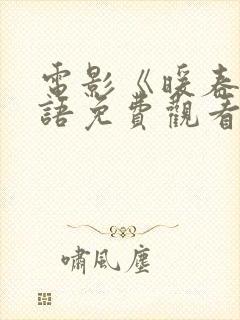 電影《暖春
語免費觀看
嘯風塵